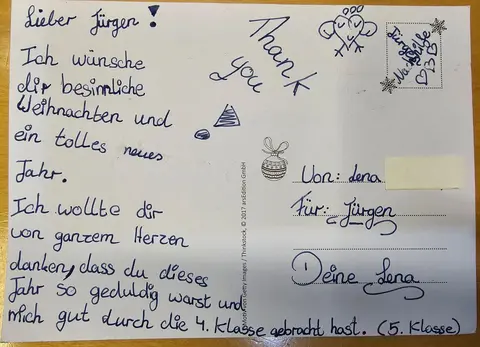 Lieber Jürgen!
Ich wünsche
dir besinnliche
Weihnachten und
ein tolles neues
Jahr.
Ich wollte dir
von ganzem Herzen
danken, dass du dieses
Jahr so geduldig warst und
mich gut durch die 4. Klasse gebracht hast. (5. Klasse)
Thank
you
Jürgen
Nachhilfe
Getty Images / Thinkstock, © 2017 arsEdition GmbH
Von: Lena
Für: Jürgen
Deine Lena